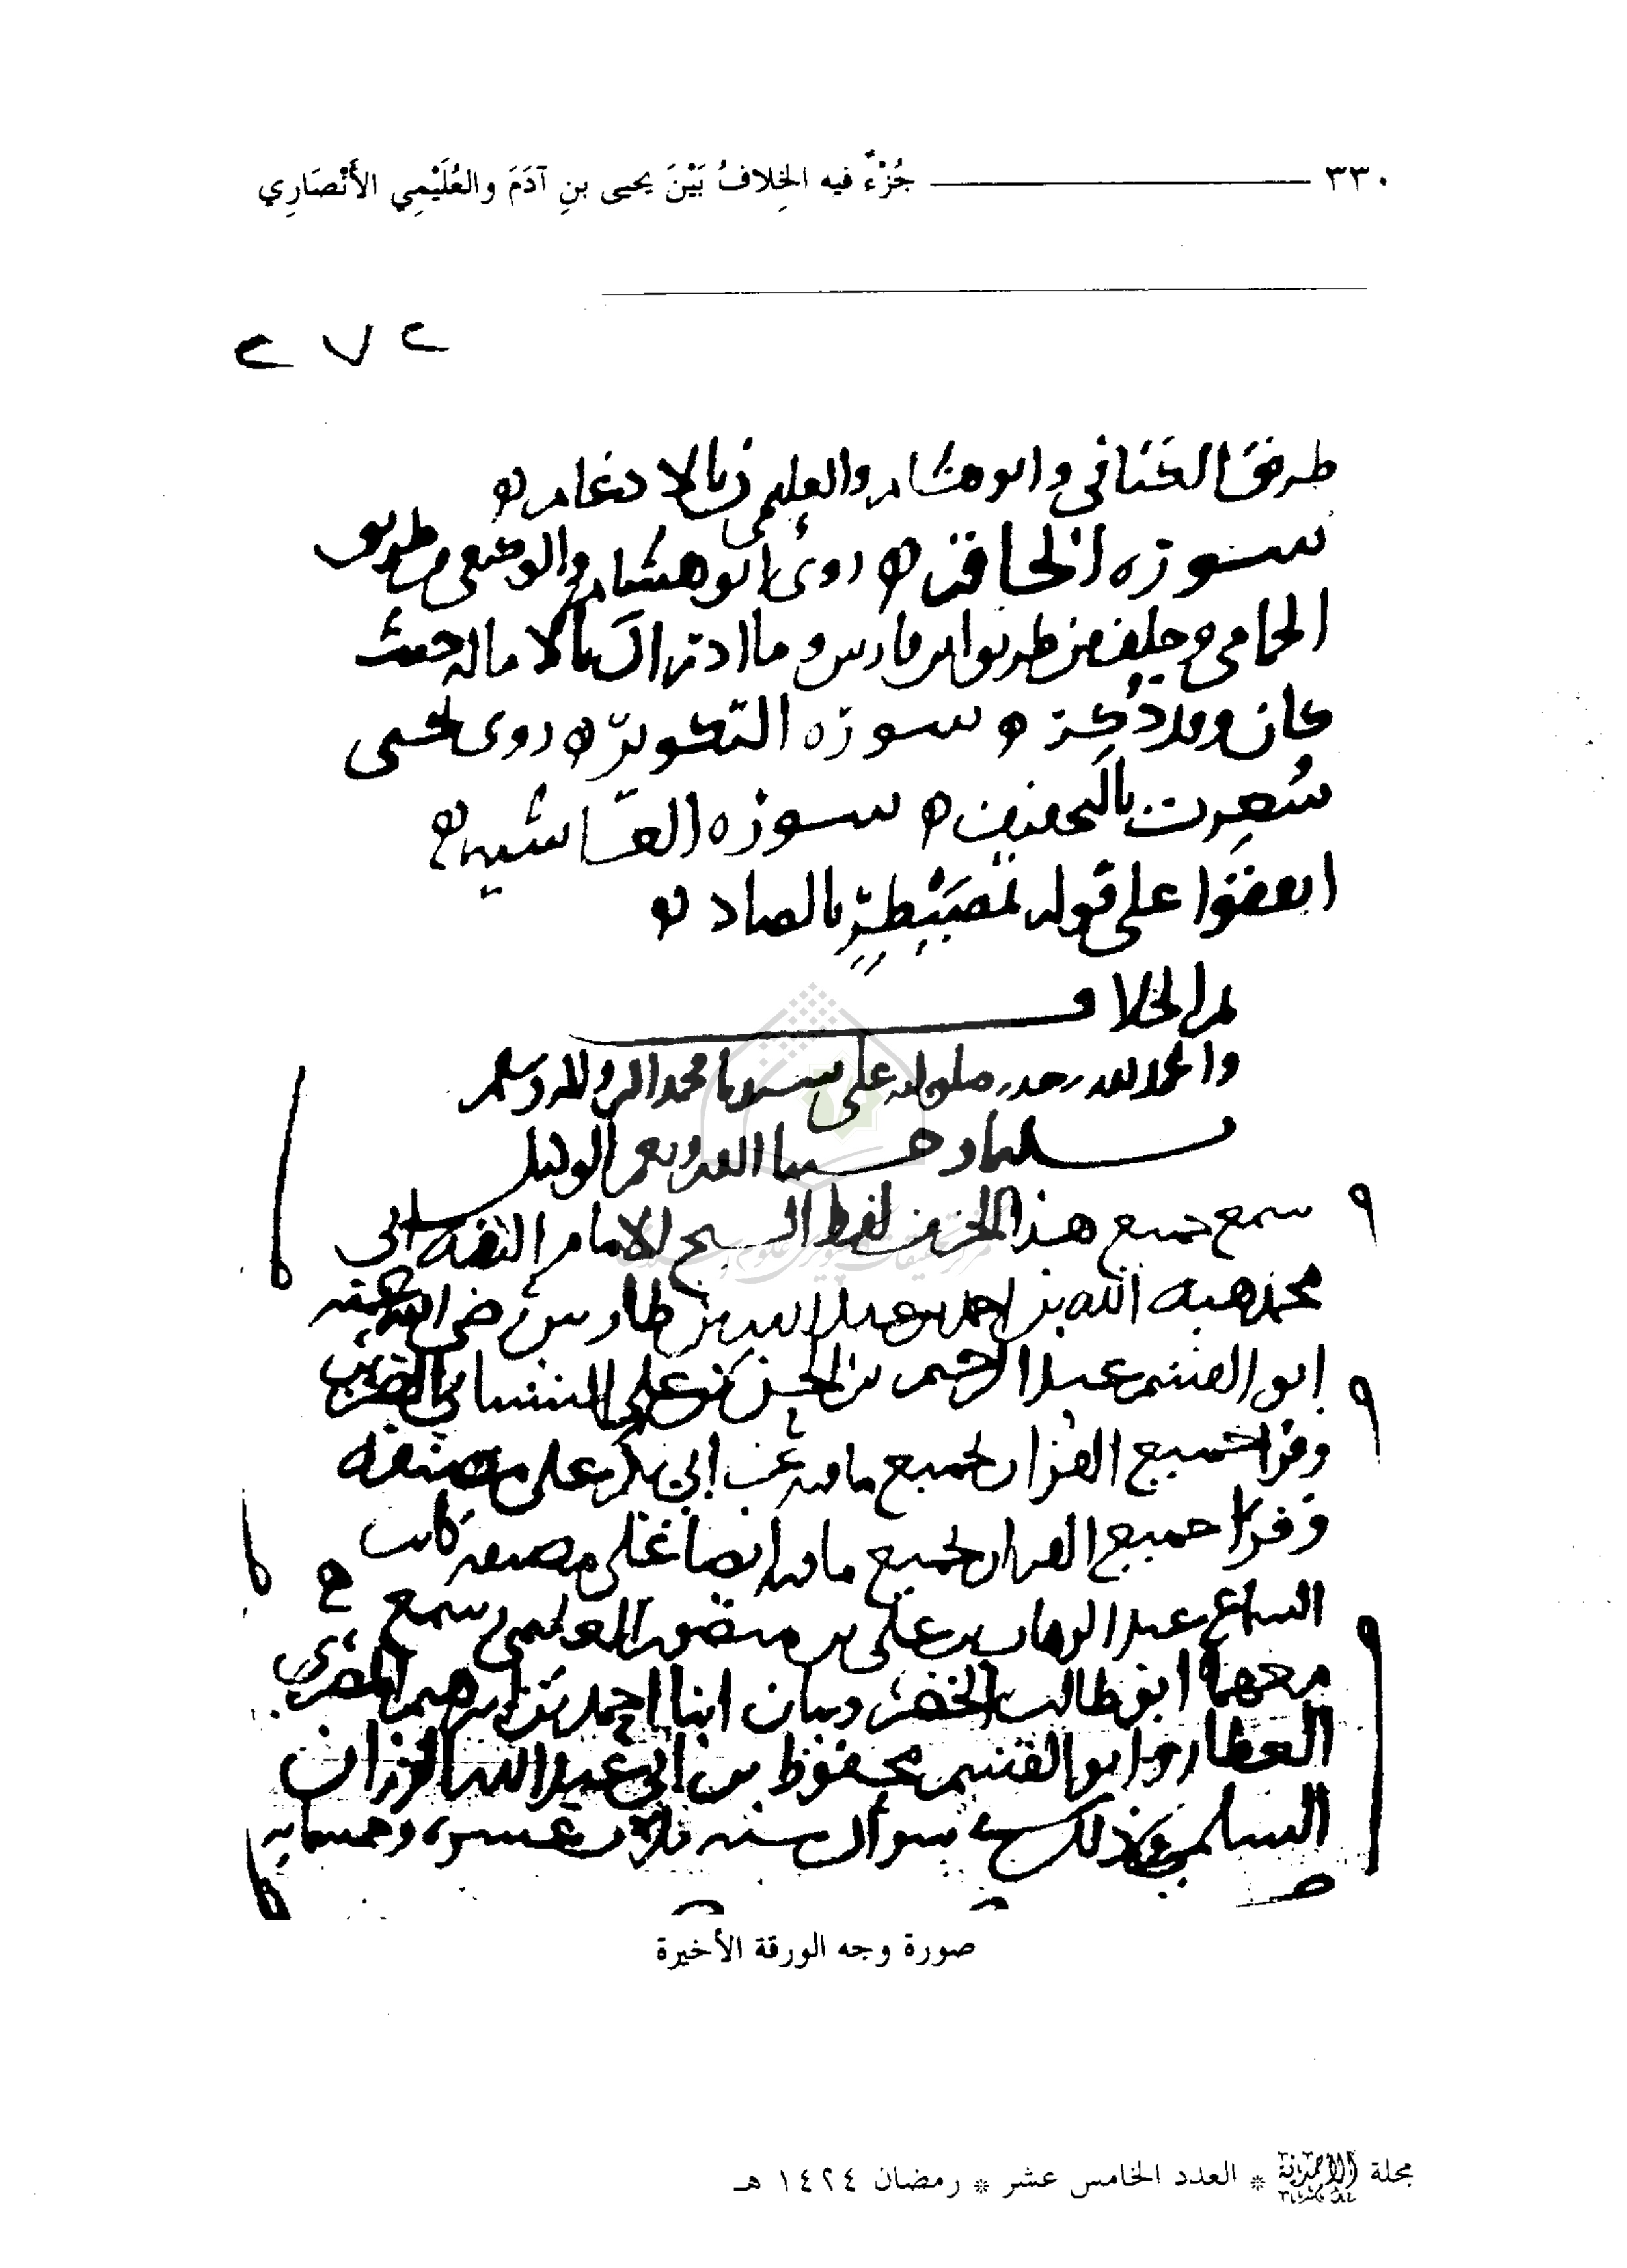 ٣٣٠ جُزْءٌ فيه الخِلافُ بَيْنَ يحيى بنِ آدَمَ والعُلَيْمِي الأَنْصَارِي
٢٧٢
طريق الكناني وابو هشام والعليمي بالادغام
سورة الحاقة روى ابو هشام والوكيعي من طريق
الحمامي وخلف من طريق ابن فارس وما ادراك بالامالة حيث
كان وقد ذكر سورة التكوير روى يحيى
سُعِرت بالتخفيف سورة الغاشية
اتفقوا على قوله بمُصَيْطِرٍ بالصاد
تم الخلاف
والحمد لله وحده وصلواته على سيدنا محمد النبي واله وسلم
تسليما وحسبنا الله ونعم الوكيل
سمع جميع هذا الجزء من لفظ الشيخ الامام الثقة ابي
محمد هبة الله بن احمد بن عبد الله بن طاوس رضي الله عنه
ابو القسم عبد الرحيم بن الحسن بن علي الضرير
وقرا جميع القران بجميع ما فيه عن ابي بكر على مصنفه
وقرا جميع القران بجميع ما فيه ايضا على مصنفه كاتب
السماع عبد الوهاب بن علي بن منصور وسمع
معهما ابو طالب الخضر وبيان ابنا احمد بن ابرهيم
العطار وابو القسم محفوظ بن ابي عبد الله
السلمي وذلك في شوال سنة وخمسمايه
صورة وجه الورقة الأخيرة
مجلة الأحمدية * العدد الخامس عشر * رمضان ١٤٢٤ هـ